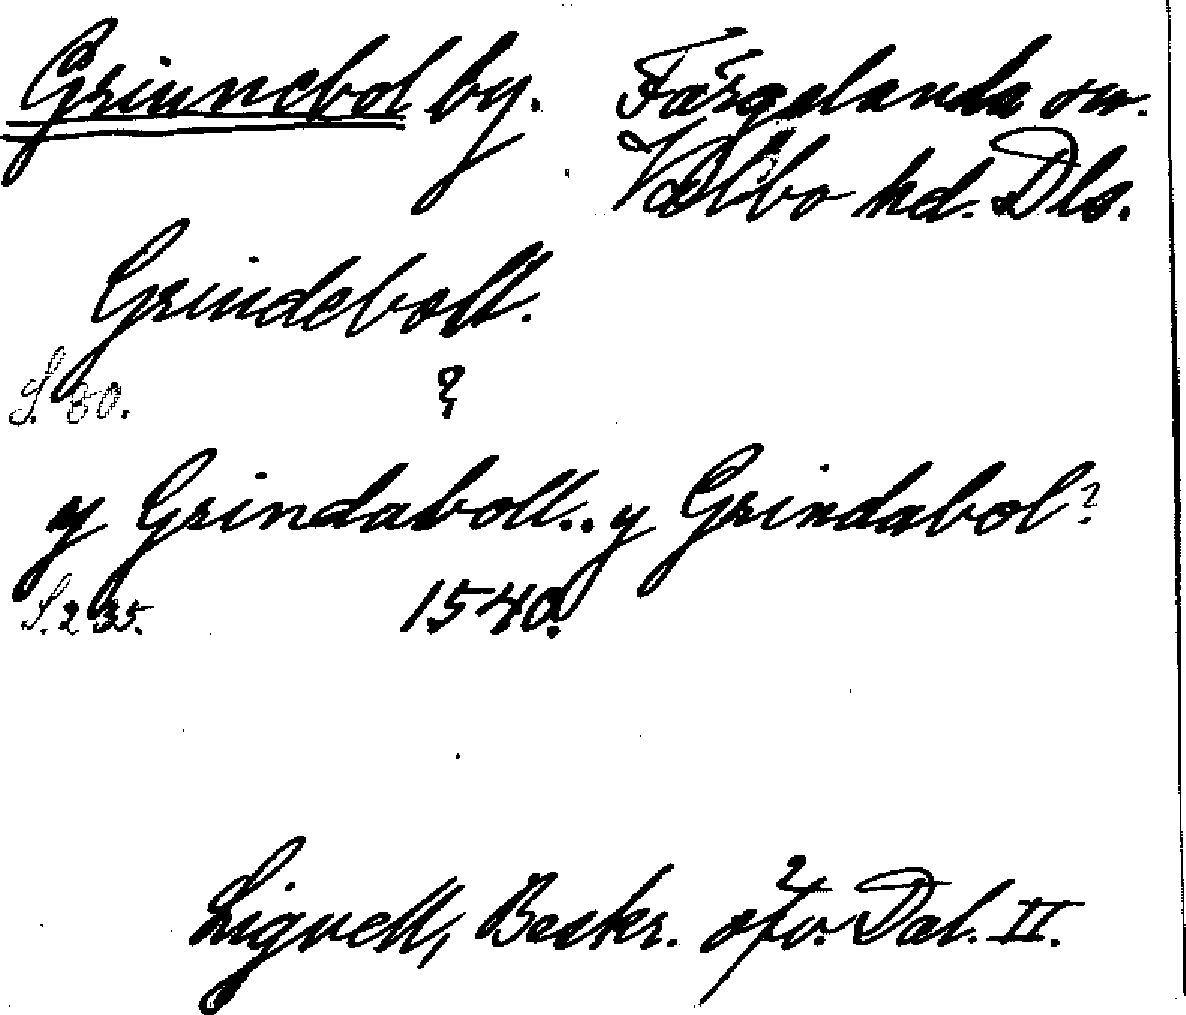 Grinnebol by. Färgelanda sn.
Valbo hd. Dls.
Grindeboll.
S. 50. ?
y Grindaboll.. y Grindabol?
S. 235. 1540.
Lignell, Beskr. öfv. Dal. II.